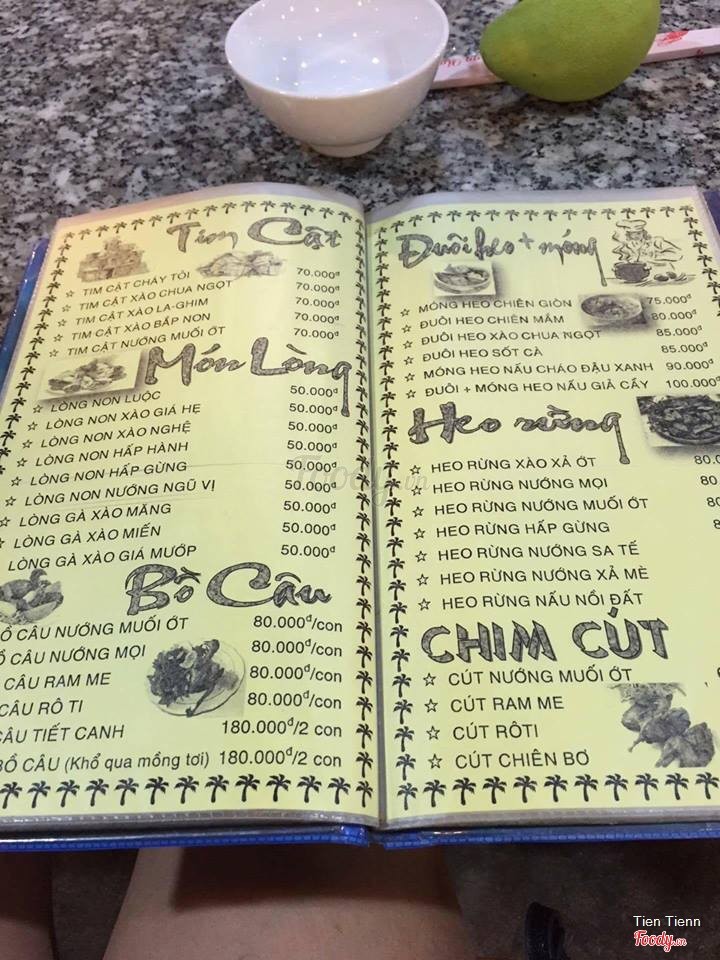 Tim Cật
☆ TIM CẬT CHÁY TỎI 70.000đ
☆ TIM CẬT XÀO CHUA NGỌT 70.000đ
☆ TIM CẬT XÀO LA-GHIM 70.000đ
☆ TIM CẬT XÀO BẮP NON 70.000đ
☆ TIM CẬT NƯỚNG MUỐI ỚT 70.000đ
Món Lòng
☆ LÒNG NON LUỘC 50.000đ
☆ LÒNG NON XÀO GIÁ HẸ 50.000đ
☆ LÒNG NON XÀO NGHỆ 50.000đ
☆ LÒNG NON HẤP HÀNH 50.000đ
☆ LÒNG NON HẤP GỪNG 50.000đ
☆ LÒNG NON NƯỚNG NGŨ VỊ 50.000đ
☆ LÒNG GÀ XÀO MĂNG 50.000đ
☆ LÒNG GÀ XÀO MIẾN 50.000đ
LÒNG GÀ XÀO GIÁ MƯỚP 50.000đ
Bồ Câu
CÂU NƯỚNG MUỐI ỚT 80.000đ/con
CÂU NƯỚNG MỌI 80.000đ/con
CÂU RAM ME 80.000đ/con
CÂU RÔ TI 80.000đ/con
CÂU TIẾT CANH 180.000đ/2 con
BỒ CÂU (Khổ qua mồng tơi) 180.000đ/2 con
Đuôi heo + móng
☆ MÓNG HEO CHIÊN GIÒN 75.000đ
☆ ĐUÔI HEO CHIÊN MẮM 80.000đ
☆ ĐUÔI HEO XÀO CHUA NGỌT 85.000đ
☆ ĐUÔI HEO SỐT CÀ 85.000đ
☆ MÓNG HEO NẤU CHÁO ĐẬU XANH 90.000đ
☆ ĐUÔI + MÓNG HEO NẤU GIẢ CẦY 100.000đ
Heo rừng
☆ HEO RỪNG XÀO XẢ ỚT
☆ HEO RỪNG NƯỚNG MỌI
☆ HEO RỪNG NƯỚNG MUỐI ỚT
☆ HEO RỪNG HẤP GỪNG
☆ HEO RỪNG NƯỚNG SA TẾ
☆ HEO RỪNG NƯỚNG XẢ MÈ
☆ HEO RỪNG NẤU NỒI ĐẤT
CHIM CÚT
☆ CÚT NƯỚNG MUỐI ỚT
☆ CÚT RAM ME
☆ CÚT RÔTI
☆ CÚT CHIÊN BƠ
Foody.vn
Tien Tienn
Foody.vn